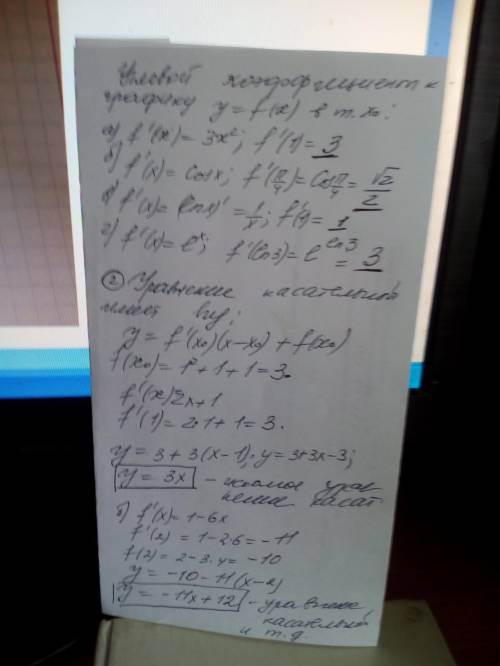 Угловой коэффициент к
графику y = f(x) в т. x₀:
а) f'(x) = 3x²; f'(1) = 3
б) f'(x) = cosx; f'(π/4) = cos π/4 = √2/2
в) f'(x) = (lnx)' = 1/x; f'(1) = 1
г) f'(x) = eˣ; f'(ln3) = e^ln3 = 3
② Уравнение касательной
имеет
y = f'(x₀)(x-x₀) + f(x₀)
f(x₀) = 1² + 1 + 1 = 3.
f'(x) = 2x+1
f'(1) = 2·1 + 1 = 3.
y = 3 + 3(x-1); y = 3+3x-3;
y = 3x - искомое урав
нение касат.
б) f'(x) = 1-6x
f'(2) = 1-2·6 = -11
f(2) = 2-3·4 = -10
y = -10-11(x-2)
y = -11x+12 - уравнение
касательной
и т.д